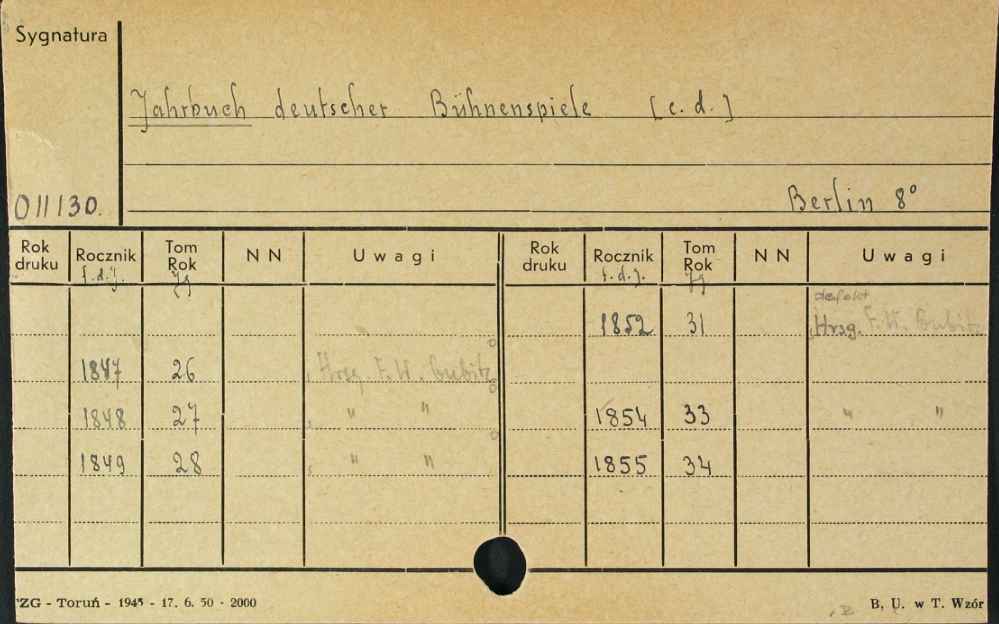 Sygnatura
Jahrbuch deutscher Bühnenspiele [c.d.]
011130.
Berlin 8°
Rok druku Rocznik f.d.J. Tom Rok Jg NN Uwagi Rok druku Rocznik f.d.J. Tom Rok Jg NN Uwagi
defekt
1852 31 Hrsg. F.W. Gubitz
1847 26 Hrsg. F.W. Gubitz
1848 27 " " 1854 33 " "
1849 28 " " 1855 34
ZG - Toruń - 1945 - 17. 6. 50 - 2000
B. U. w T. Wzór